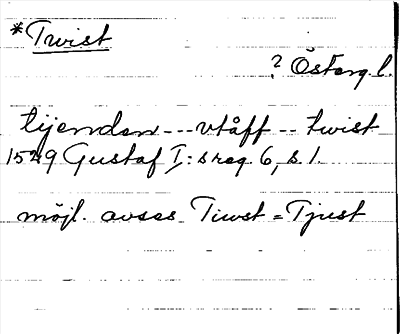 *Twist
? Österg. l.
tijenden --- vtåff -- twist
1529 Gustaf I:s reg. 6, s. 1.
möjl. avses Tiwst = Tjust